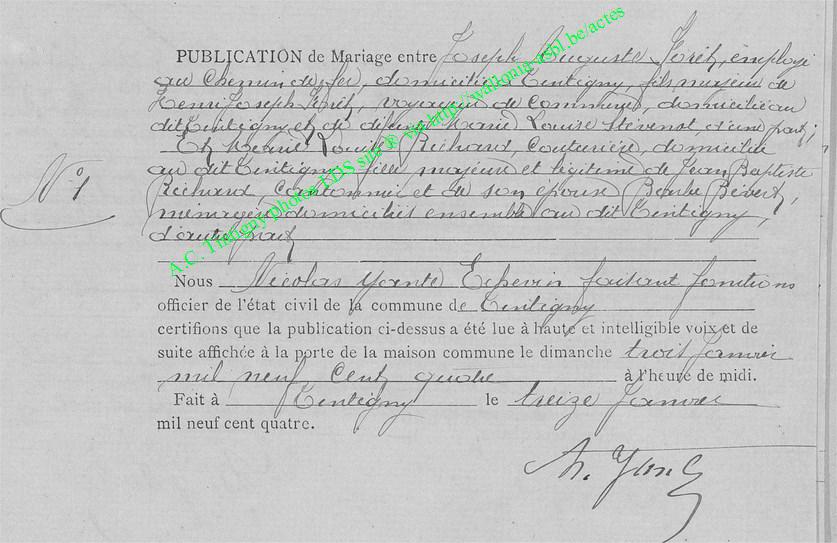 PUBLICATION de Mariage entre Joseph Auguste employé
au Chemin de fer, domicilié Tintigny, fils majeur de
Henri Joseph voyageur de Commerce, domicilié au
dit Tintigny et de défunte Marie Louise Stévenot, d'une part;
Et Marie Louise Richard, Couturière, domiciliée
au dit Tintigny fille majeure et légitime de Jean Baptiste
Richard, Cantonnier et de son épouse Barbe
ménagère domiciliés ensemble au dit Tintigny,
d'autre part
N° 1
Nous Nicolas Yante Echevin faisant fonctions
officier de l'état civil de la commune de Tintigny
certifions que la publication ci-dessus a été lue à haute et intelligible voix et de
suite affichée à la porte de la maison commune le dimanche trois Janvier
mil neuf Cent quatre à l'heure de midi.
Fait à Tintigny le treize Janvier
mil neuf cent quatre.
N. Yante
A.C. Tintigny photos LDS site ® via http://wallonia-aspl.be/actes